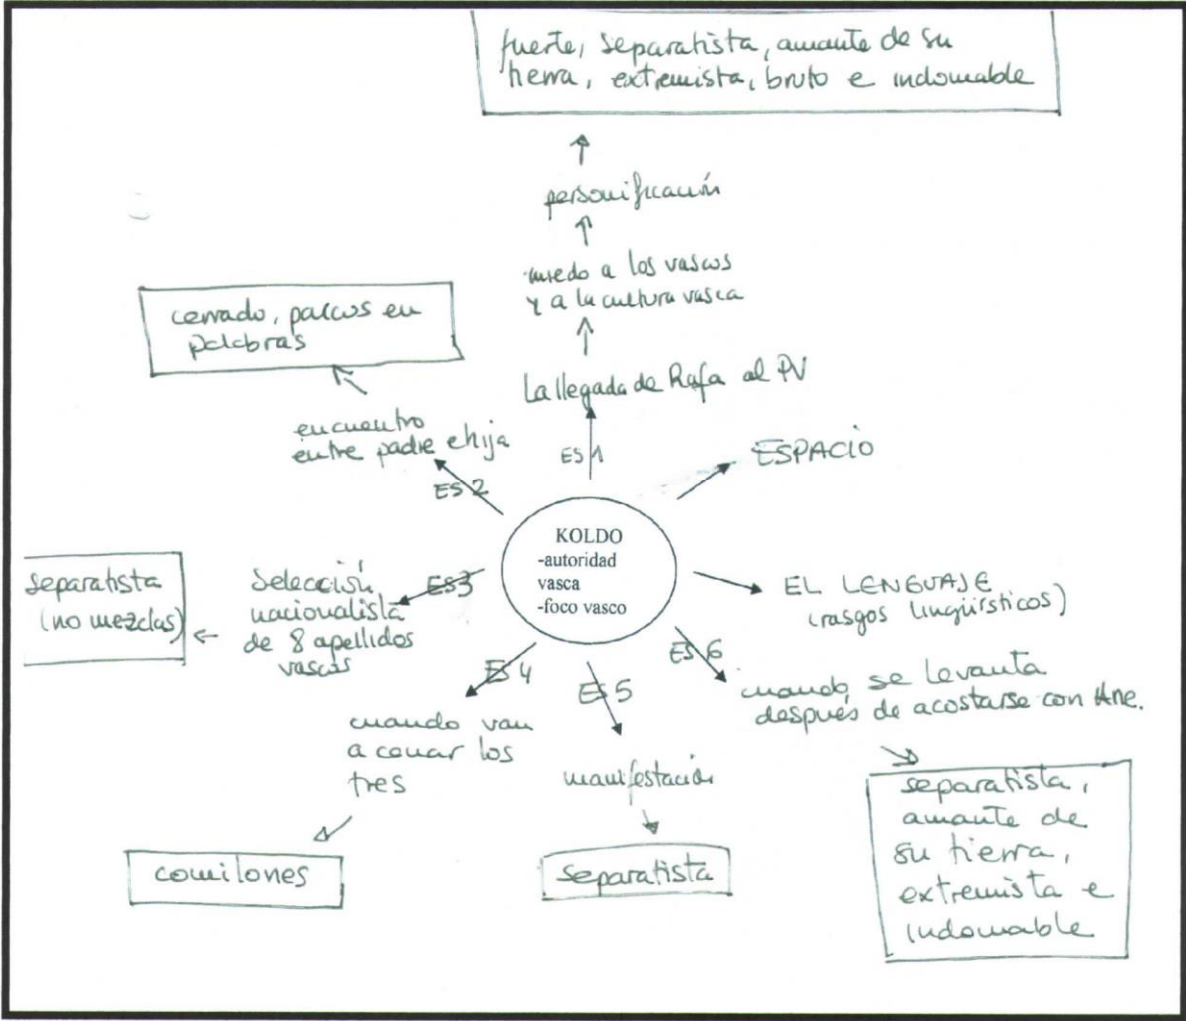 fuerte, separatista, amante de su
tierra, extremista, bruto e indomable
personificación
miedo a los vascos
y a la cultura vasca
La llegada de Rafa al PV
ES 1
cerrado, parcos en
palabras
encuentro
entre padre e hija
ES 2
ESPACIO
KOLDO
-autoridad
vasca
-foco vasco
EL LENGUAJE
(rasgos lingüísticos)
ES3
Selección
nacionalista
de 8 apellidos
vascos
separatista
(no mezclas)
ES 4
cuando van
a cenar los
tres
comilones
ES 5
manifestación
separatista
ES 6
cuando se levanta
después de acostarse con Ane.
separatista,
amante de
su tierra,
extremista e
indomable